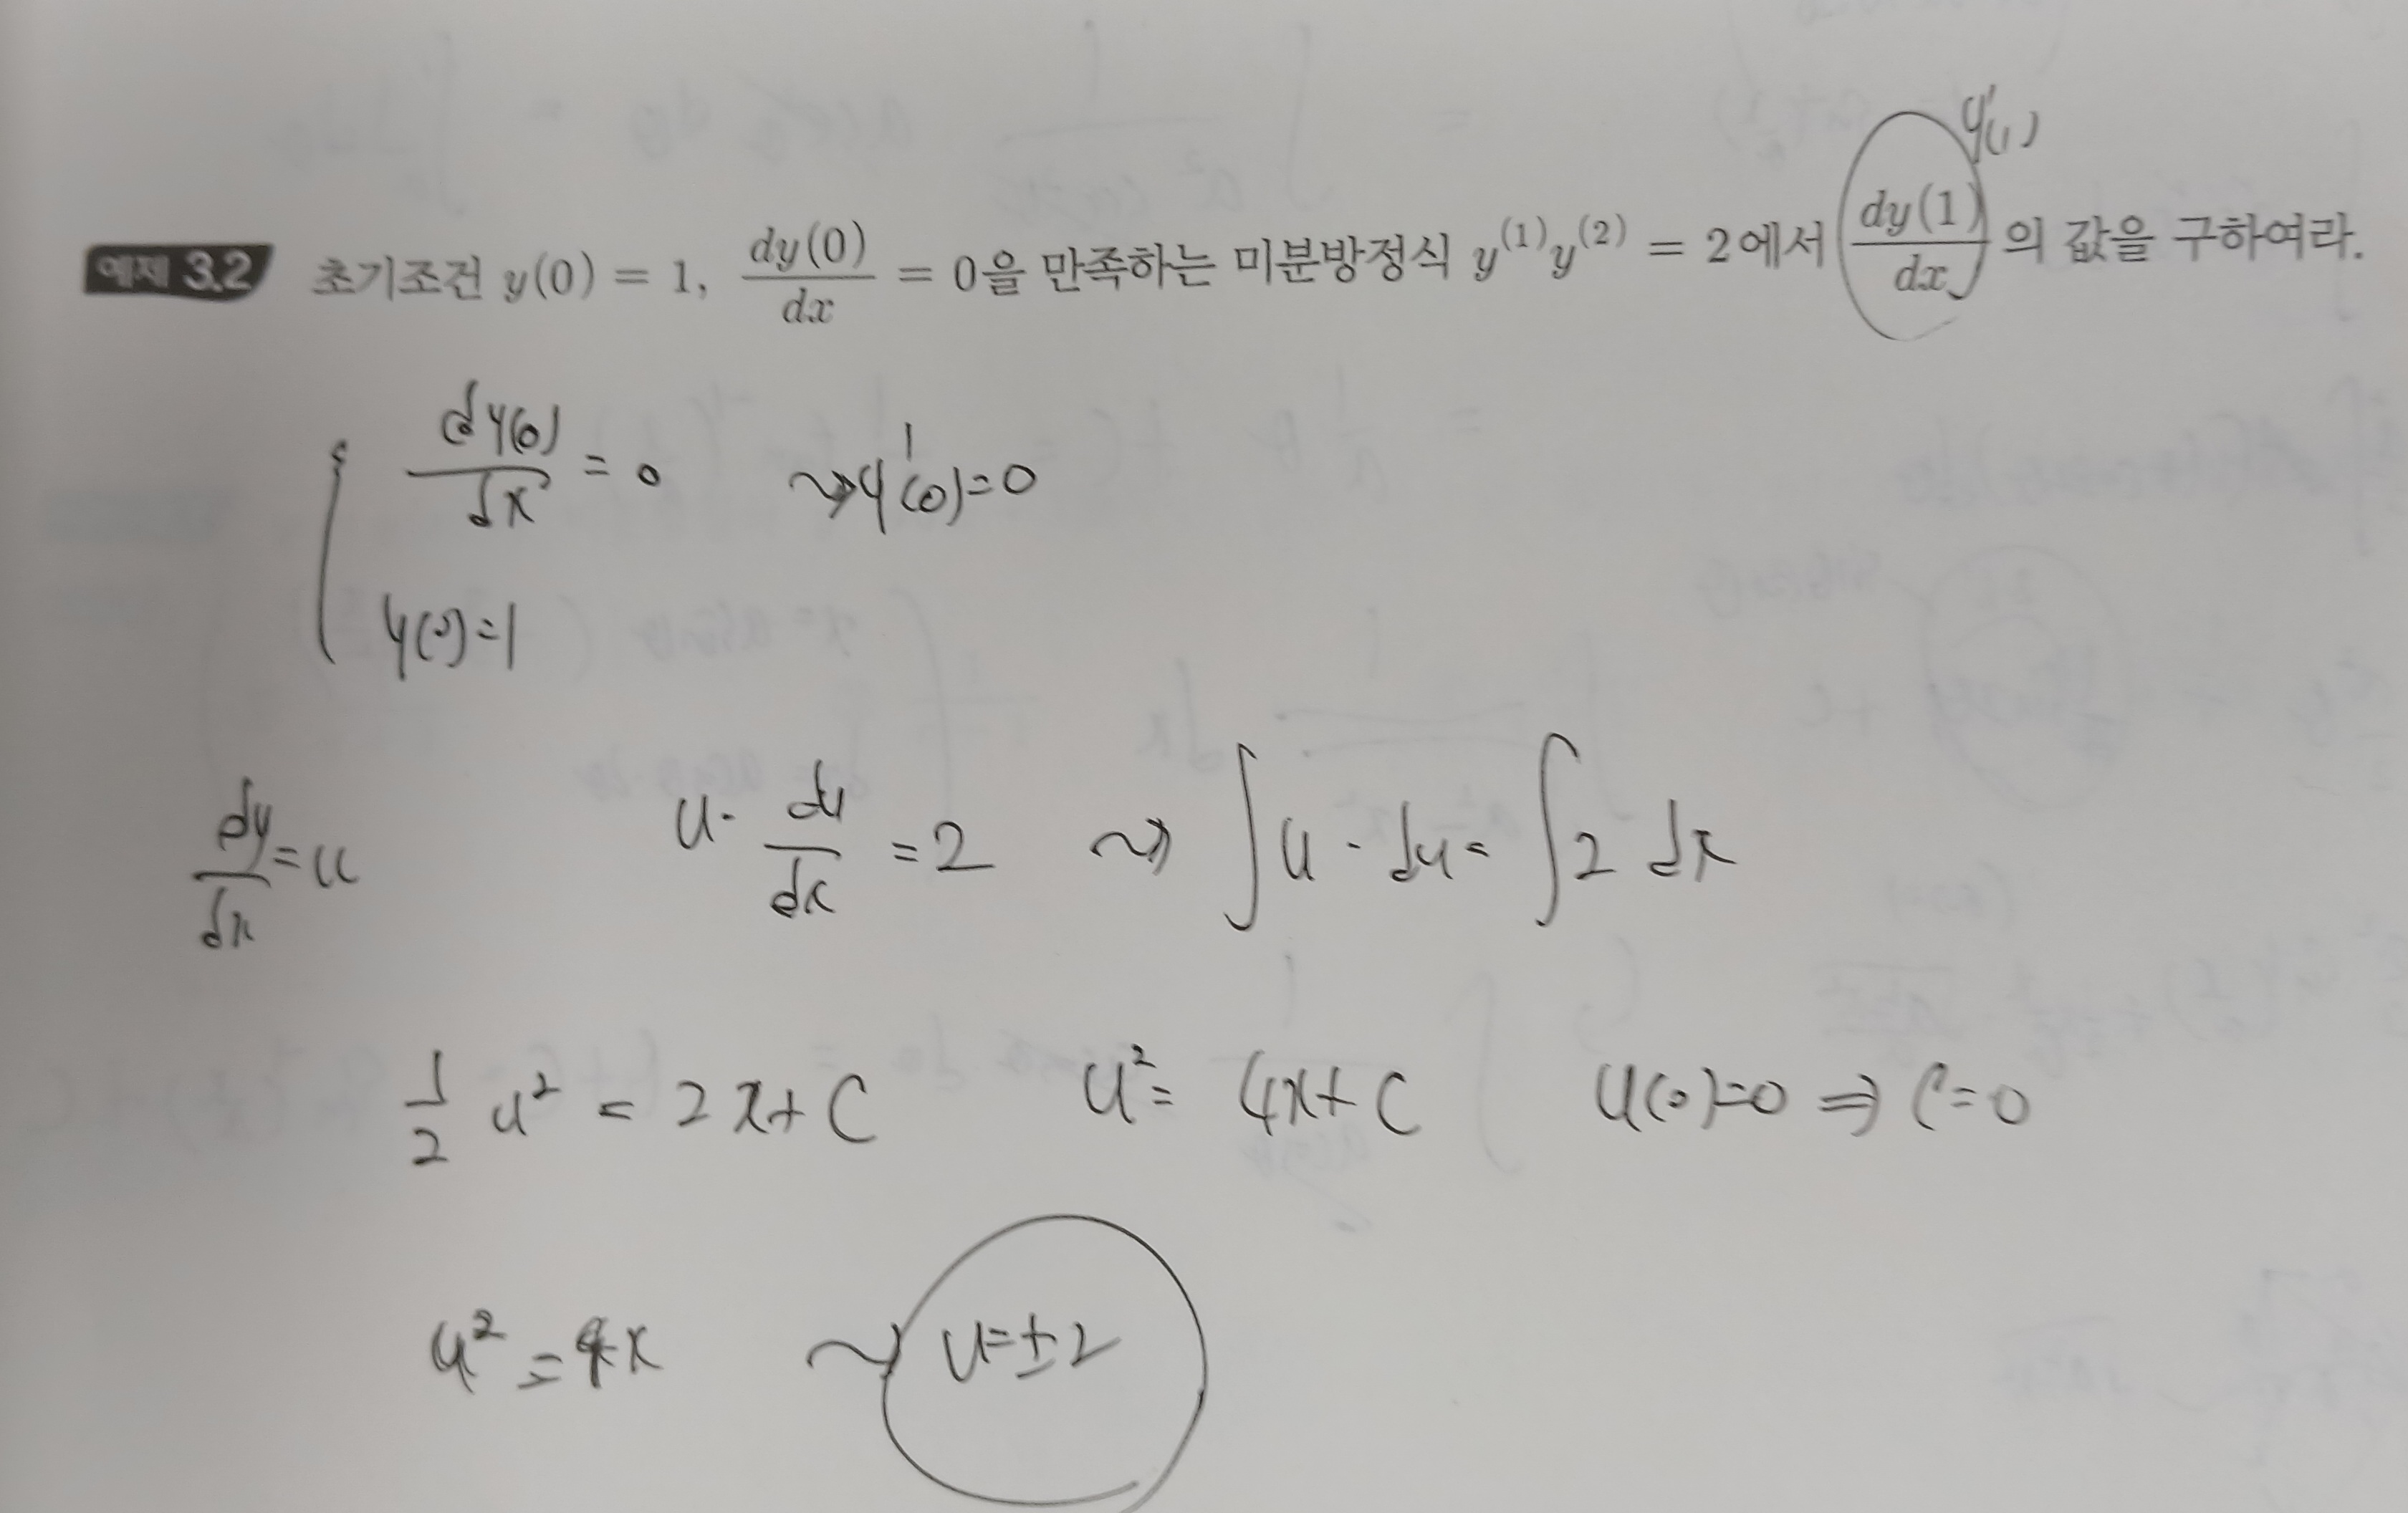 예제 3.2 초기조건 y(0) = 1, dy(0)/dx = 0을 만족하는 미분방정식 y^(1)y^(2) = 2에서 dy(1)/dx의 값을 구하여라.
y'(1)
dy(0)/dx = 0 ⇝ y'(0)=0
y(0)=1
dy/dx = u u · du/dx = 2 ⇝ ∫ u · du = ∫ 2 dx
1/2 u² = 2x+C u² = 4x+C u(0)=0 ⇒ C=0
u² = 4x ⇝ u=±2